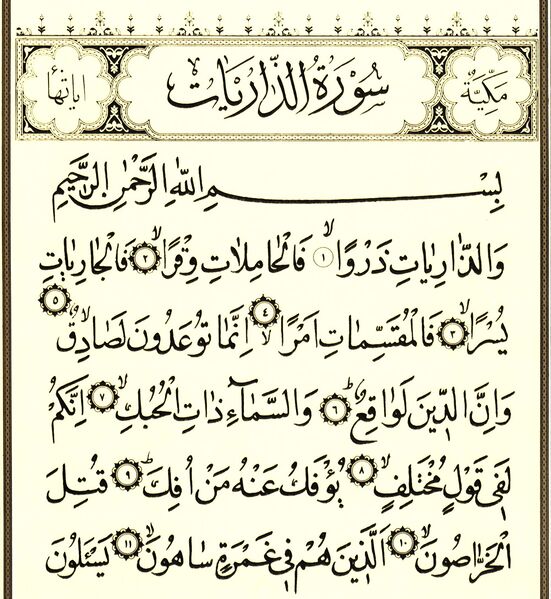 مَكِّيَّةٌ سُورَةُ الذَّارِيَاتِ اياتها
بِسْمِ اللهِ الرَّحْمٰنِ الرَّحِيمِ
وَالذَّارِيَاتِ ذَرْوًاۙ ﴿١﴾ فَالْحَامِلَاتِ وِقْرًاۙ ﴿٢﴾ فَالْجَارِيَاتِ
يُسْرًاۙ ﴿٣﴾ فَالْمُقَسِّمَاتِ اَمْرًاۙ ﴿٤﴾ اِنَّمَا تُوعَدُونَ لَصَادِقٌۙ ﴿٥﴾
وَاِنَّ الدِّينَ لَوَاقِعٌۜ ﴿٦﴾ وَالسَّمَٓاءِ ذَاتِ الْحُبُكِۙ ﴿٧﴾ اِنَّكُمْ
لَفِي قَوْلٍ مُخْتَلِفٍۙ ﴿٨﴾ يُؤْفَكُ عَنْهُ مَنْ اُفِكَۜ ﴿٩﴾ قُتِلَ
الْخَرَّاصُونَۙ ﴿١٠﴾ اَلَّذِينَ هُمْ فِي غَمْرَةٍ سَاهُونَۙ ﴿١١﴾ يَسْـَٔلُونَ